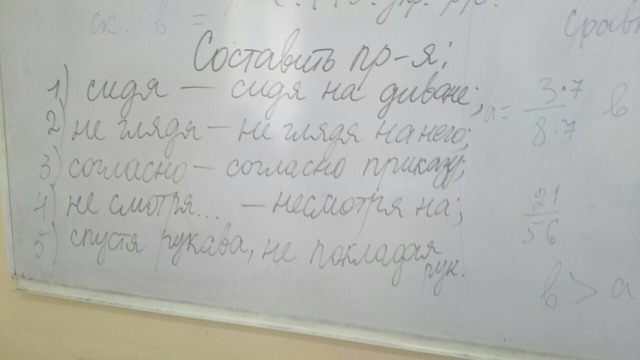 ск. в =
Составить пр-я:
1) сидя — сидя на диване;
2) не глядя — не глядя на него;
3) согласно — согласно приказу;
4) не смотря... — несмотря на;
5) спустя рукава, не покладая
рук.
сравн
a = 3·7 в
8·7
21
56
в > а